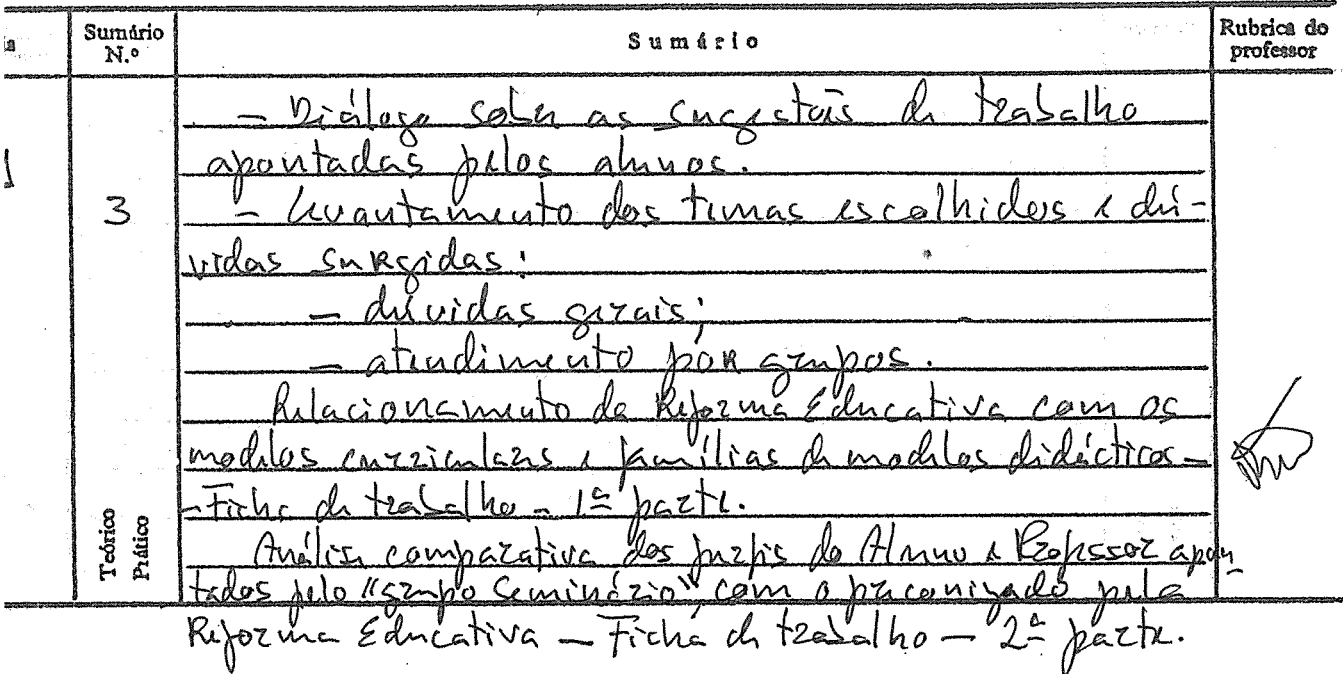 Sumário N.º
Sumário
Rubrica do professor
3
Teórico
Prático
- Diálogo sobre as sugestões de trabalho
apontadas pelos alunos.
- Levantamento dos temas escolhidos e dú-
vidas surgidas:
- dúvidas gerais;
- atendimento por grupos.
Relacionamento da Reforma Educativa com os
modelos curriculares e famílias de modelos didácticos -
- Ficha de trabalho - 1ª parte.
Análise comparativa dos perfis do Aluno e Professor apon
tados pelo "grupo Seminário" com o preconizado pela
Reforma Educativa - Ficha de trabalho - 2ª parte.